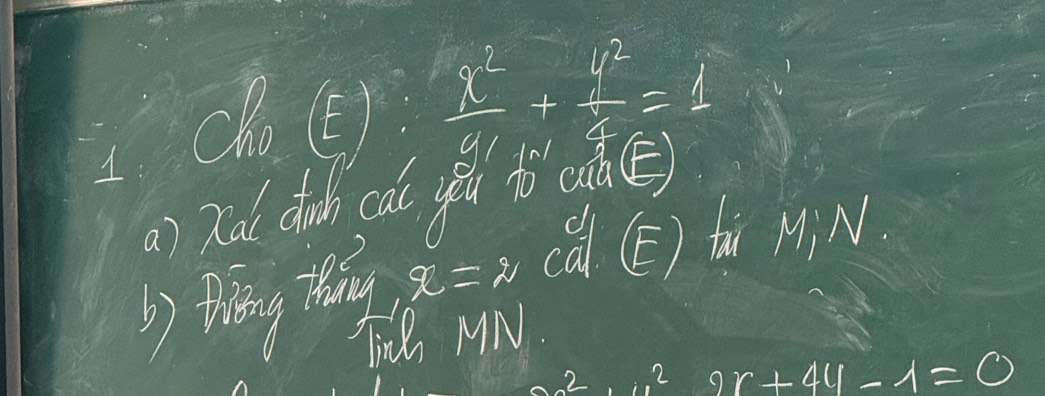 1. Cho (E): x²/9 + y²/4 = 1
a) Xác định các yếu tố của (E).
b) Đường thẳng x = 2 cắt (E) tại M; N.
Tính MN.
2x + 4y - 1 = 0